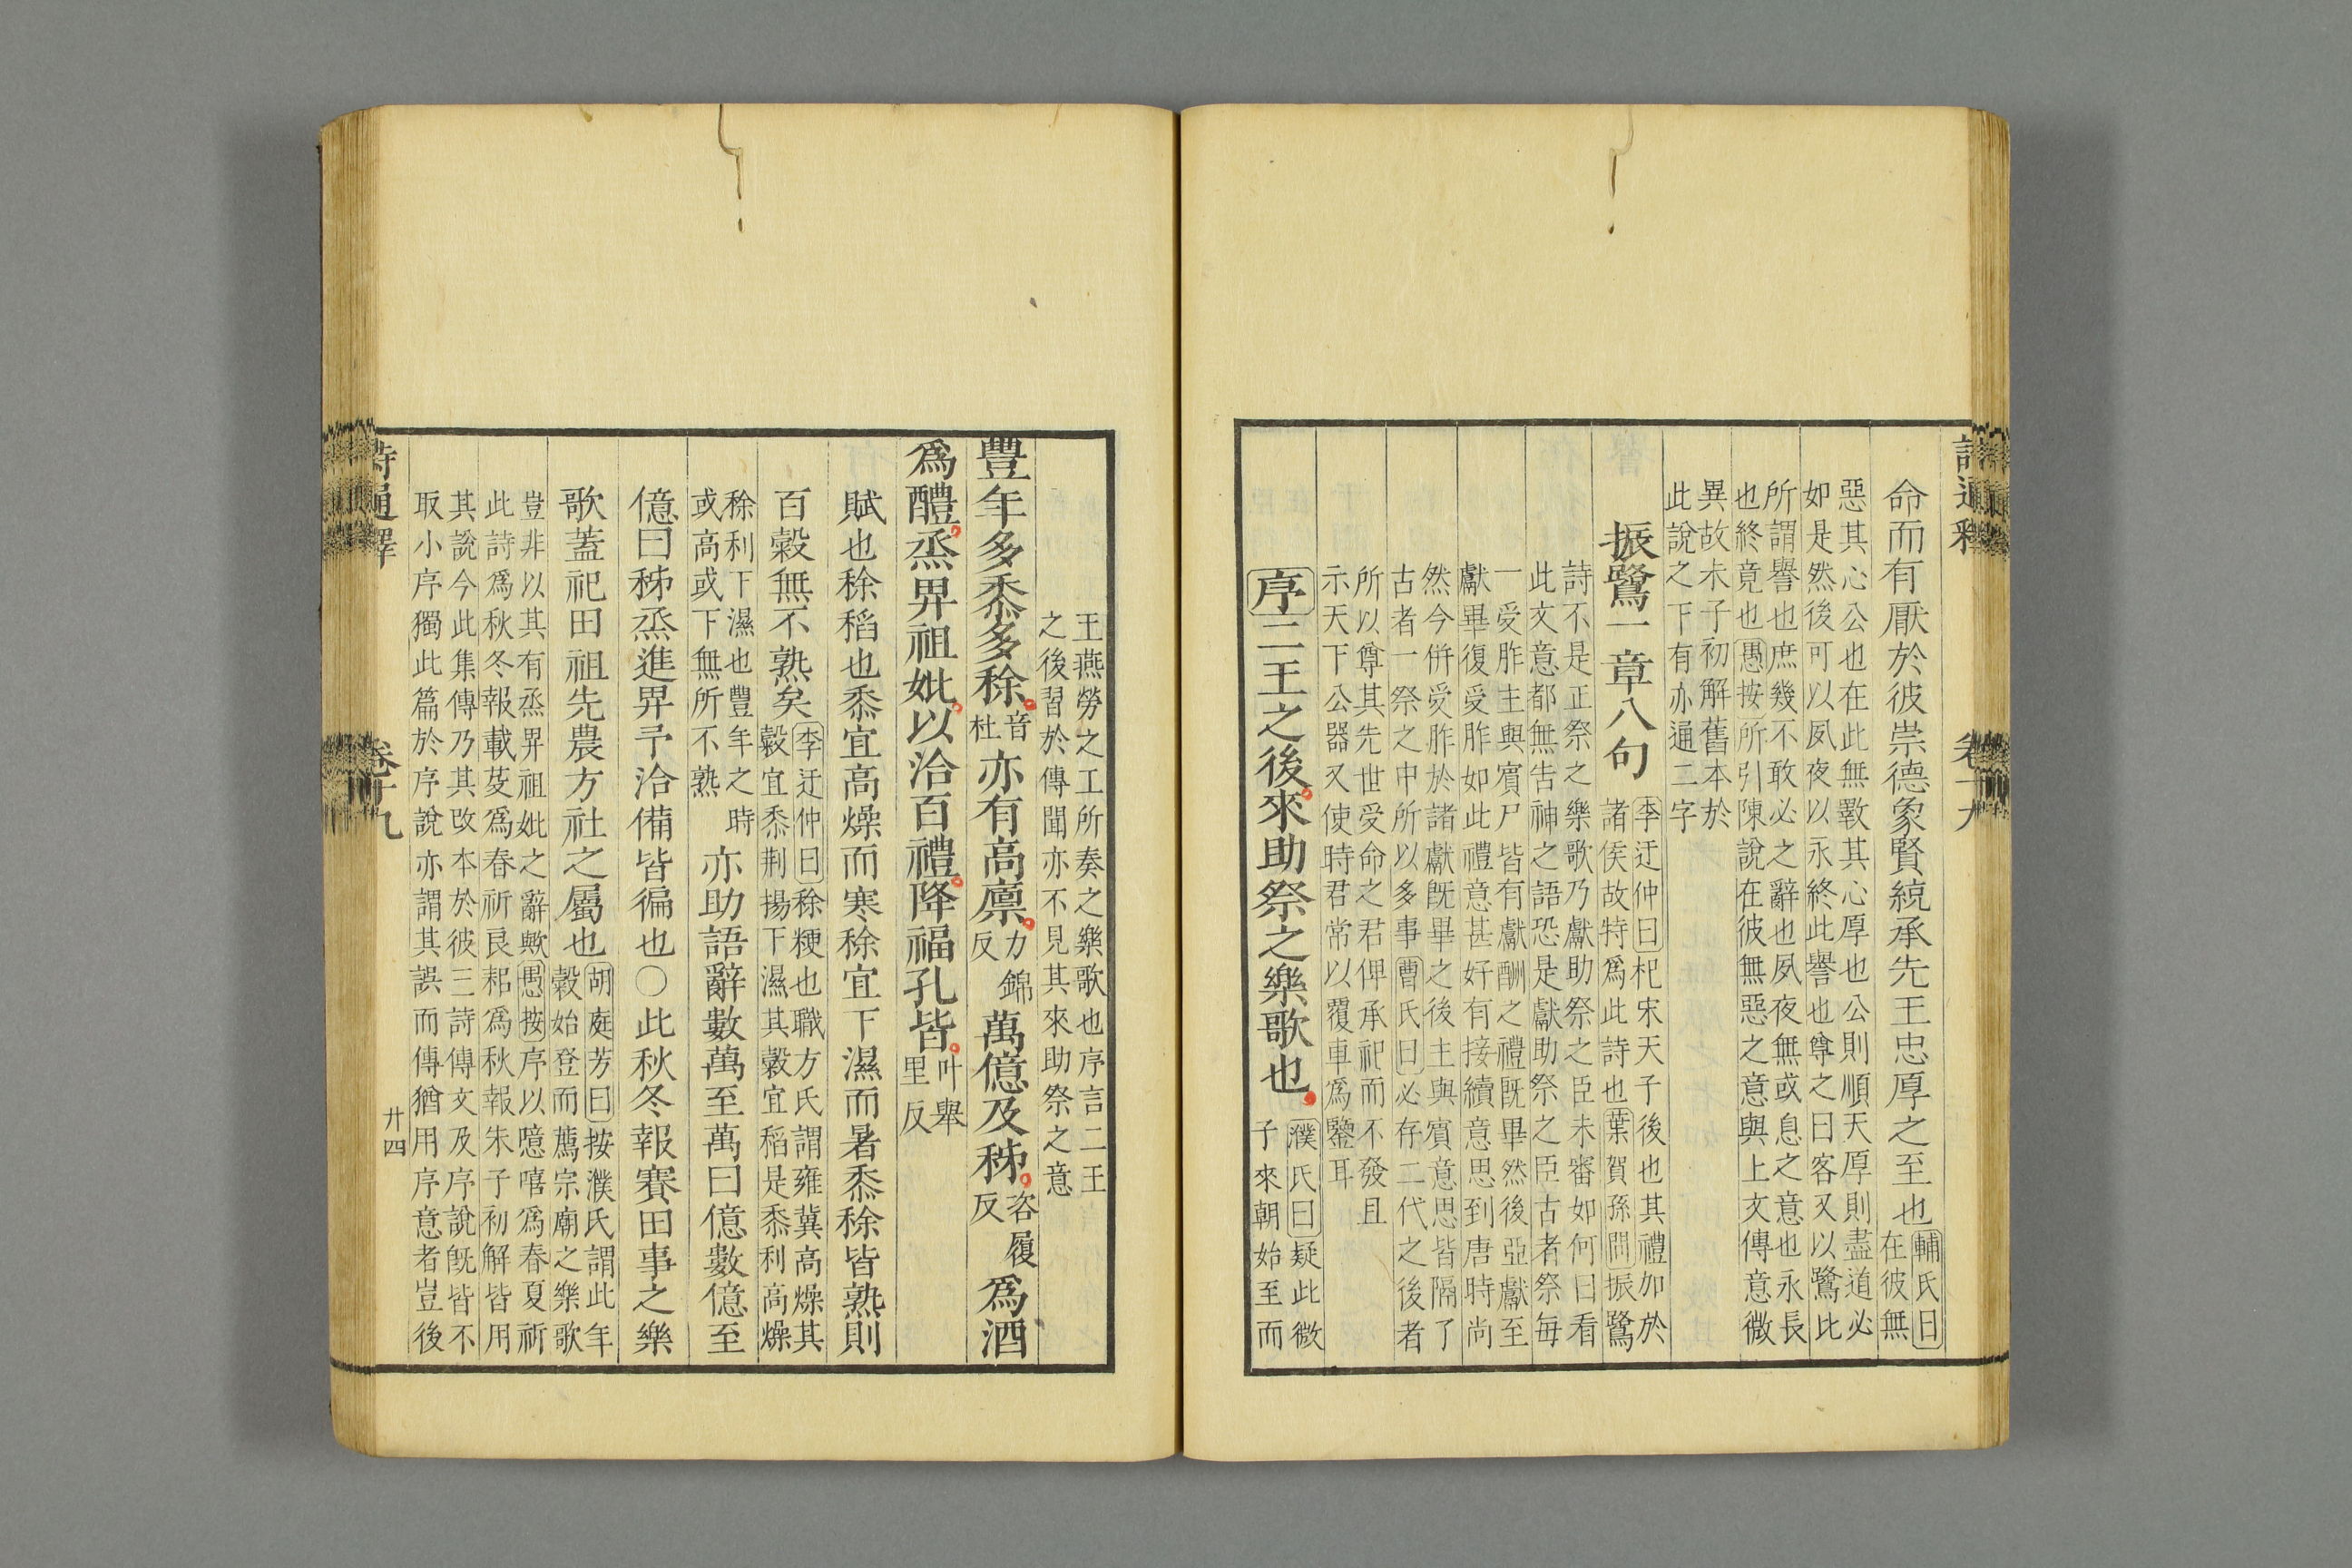 命而有厭於彼崇德象賢統承先王忠厚之至也
輔氏曰
在彼無
惡其心公也在此無斁其心厚也公則順天厚則盡道必
如是然後可以夙夜以永終此譽也尊之曰客又以鷺比
所謂譽也庶幾不敢必之辭也夙夜無或息之意也永長
也終竟也愚按所引陳說在彼無惡之意與上文傳意微
異故朱子初解舊本於
此說之下有亦通二字
振鷺一章八句
李迂仲曰杞宋天子後也其禮加於
諸侯故特爲此詩也葉賀孫問振鷺
詩不是正祭之樂歌乃獻助祭之臣未審如何曰看
此文意都無告神之語恐是獻助祭之臣古者祭每
一受胙主與賓尸皆有獻酬之禮旣畢然後亞獻至
獻畢復受胙如此禮意甚好有接續意思到唐時尚
然今倂受胙於諸獻旣畢之後主與賓意思皆隔了
古者一祭之中所以多事曹氏曰必存二代之後者
所以尊其先世受命之君俾承祀而不發且
示天下公器又使時君常以覆車爲鑒耳
序二王之後來助祭之樂歌也
濮氏曰疑此微
子來朝始至而
王燕勞之工所奏之樂歌也序言二王
之後習於傳聞亦不見其來助祭之意
豐年多黍多稌音杜亦有高廩力錦反萬億及秭咨履反爲酒
爲醴烝畀祖妣以洽百禮降福孔皆叶舉里反
賦也稌稻也黍宜高燥而寒稌宜下濕而暑黍稌皆熟則
百穀無不熟矣
李迂仲曰稌粳也職方氏謂雍冀高燥其
穀宜黍荆揚下濕其穀宜稻是黍利高燥
稌利下濕也豐年之時
或高或下無所不熟
亦助語辭數萬至萬曰億數億至
億曰秭烝進畀予洽備皆徧也○此秋冬報賽田事之樂
歌蓋祀田祖先農方社之屬也
胡庭芳曰按濮氏謂此年
穀始登而薦宗廟之樂歌
豈非以其有烝畀祖妣之辭歟愚按序以噫嘻爲春夏祈
此詩爲秋冬報載芟爲春祈良耜爲秋報朱子初解皆用
其說今此集傳乃其改本於彼三詩傳文及序說旣皆不
取小序獨此篇於序說亦謂其誤而傳猶用序意者豈後
詩通釋 卷十九 廿四